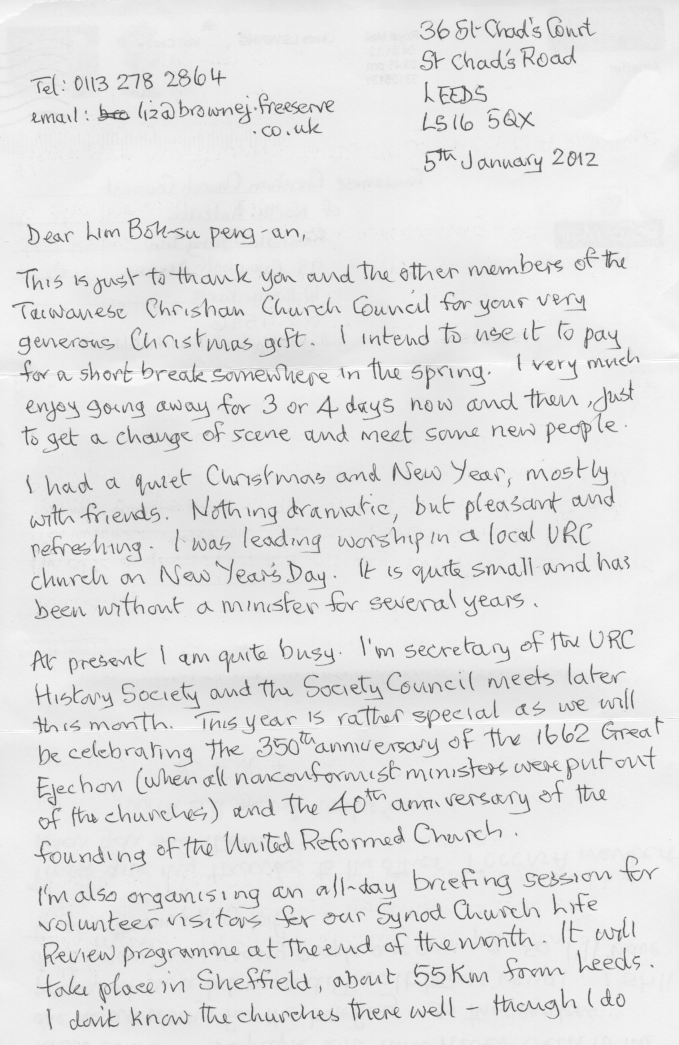 36 St Chad's Court
St Chad's Road
LEEDS
LS16 5QX
5th January 2012
Tel: 0113 278 2864
email: liz@brownej.freeserve
.co.uk
Dear Lim Bok-su peng-an,
This is just to thank you and the other members of the
Taiwanese Christian Church Council for your very
generous Christmas gift. I intend to use it to pay
for a short break somewhere in the spring. I very much
enjoy going away for 3 or 4 days now and then, just
to get a change of scene and meet some new people.
I had a quiet Christmas and New Year, mostly
with friends. Nothing dramatic, but pleasant and
refreshing. I was leading worship in a local URC
church on New Year's Day. It is quite small and has
been without a minister for several years.
At present I am quite busy. I'm secretary of the URC
History Society and the Society Council meets later
this month. This year is rather special as we will
be celebrating the 350th anniversary of the 1662 Great
Ejection (when all nonconformist ministers were put out
of the churches) and the 40th anniversary of the
founding of the United Reformed Church.
I'm also organising an all-day briefing session for
volunteer visitors for our Synod Church Life
Review programme at the end of the month. It will
take place in Sheffield, about 55Km form Leeds.
I don't know the churches there well – though I do